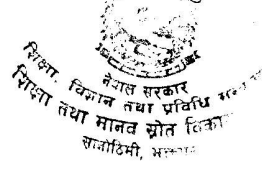 नेपाल सरकार
शिक्षा, विज्ञान तथा प्रविधि
शिक्षा तथा मानव स्रोत विका
सानोठिमी,